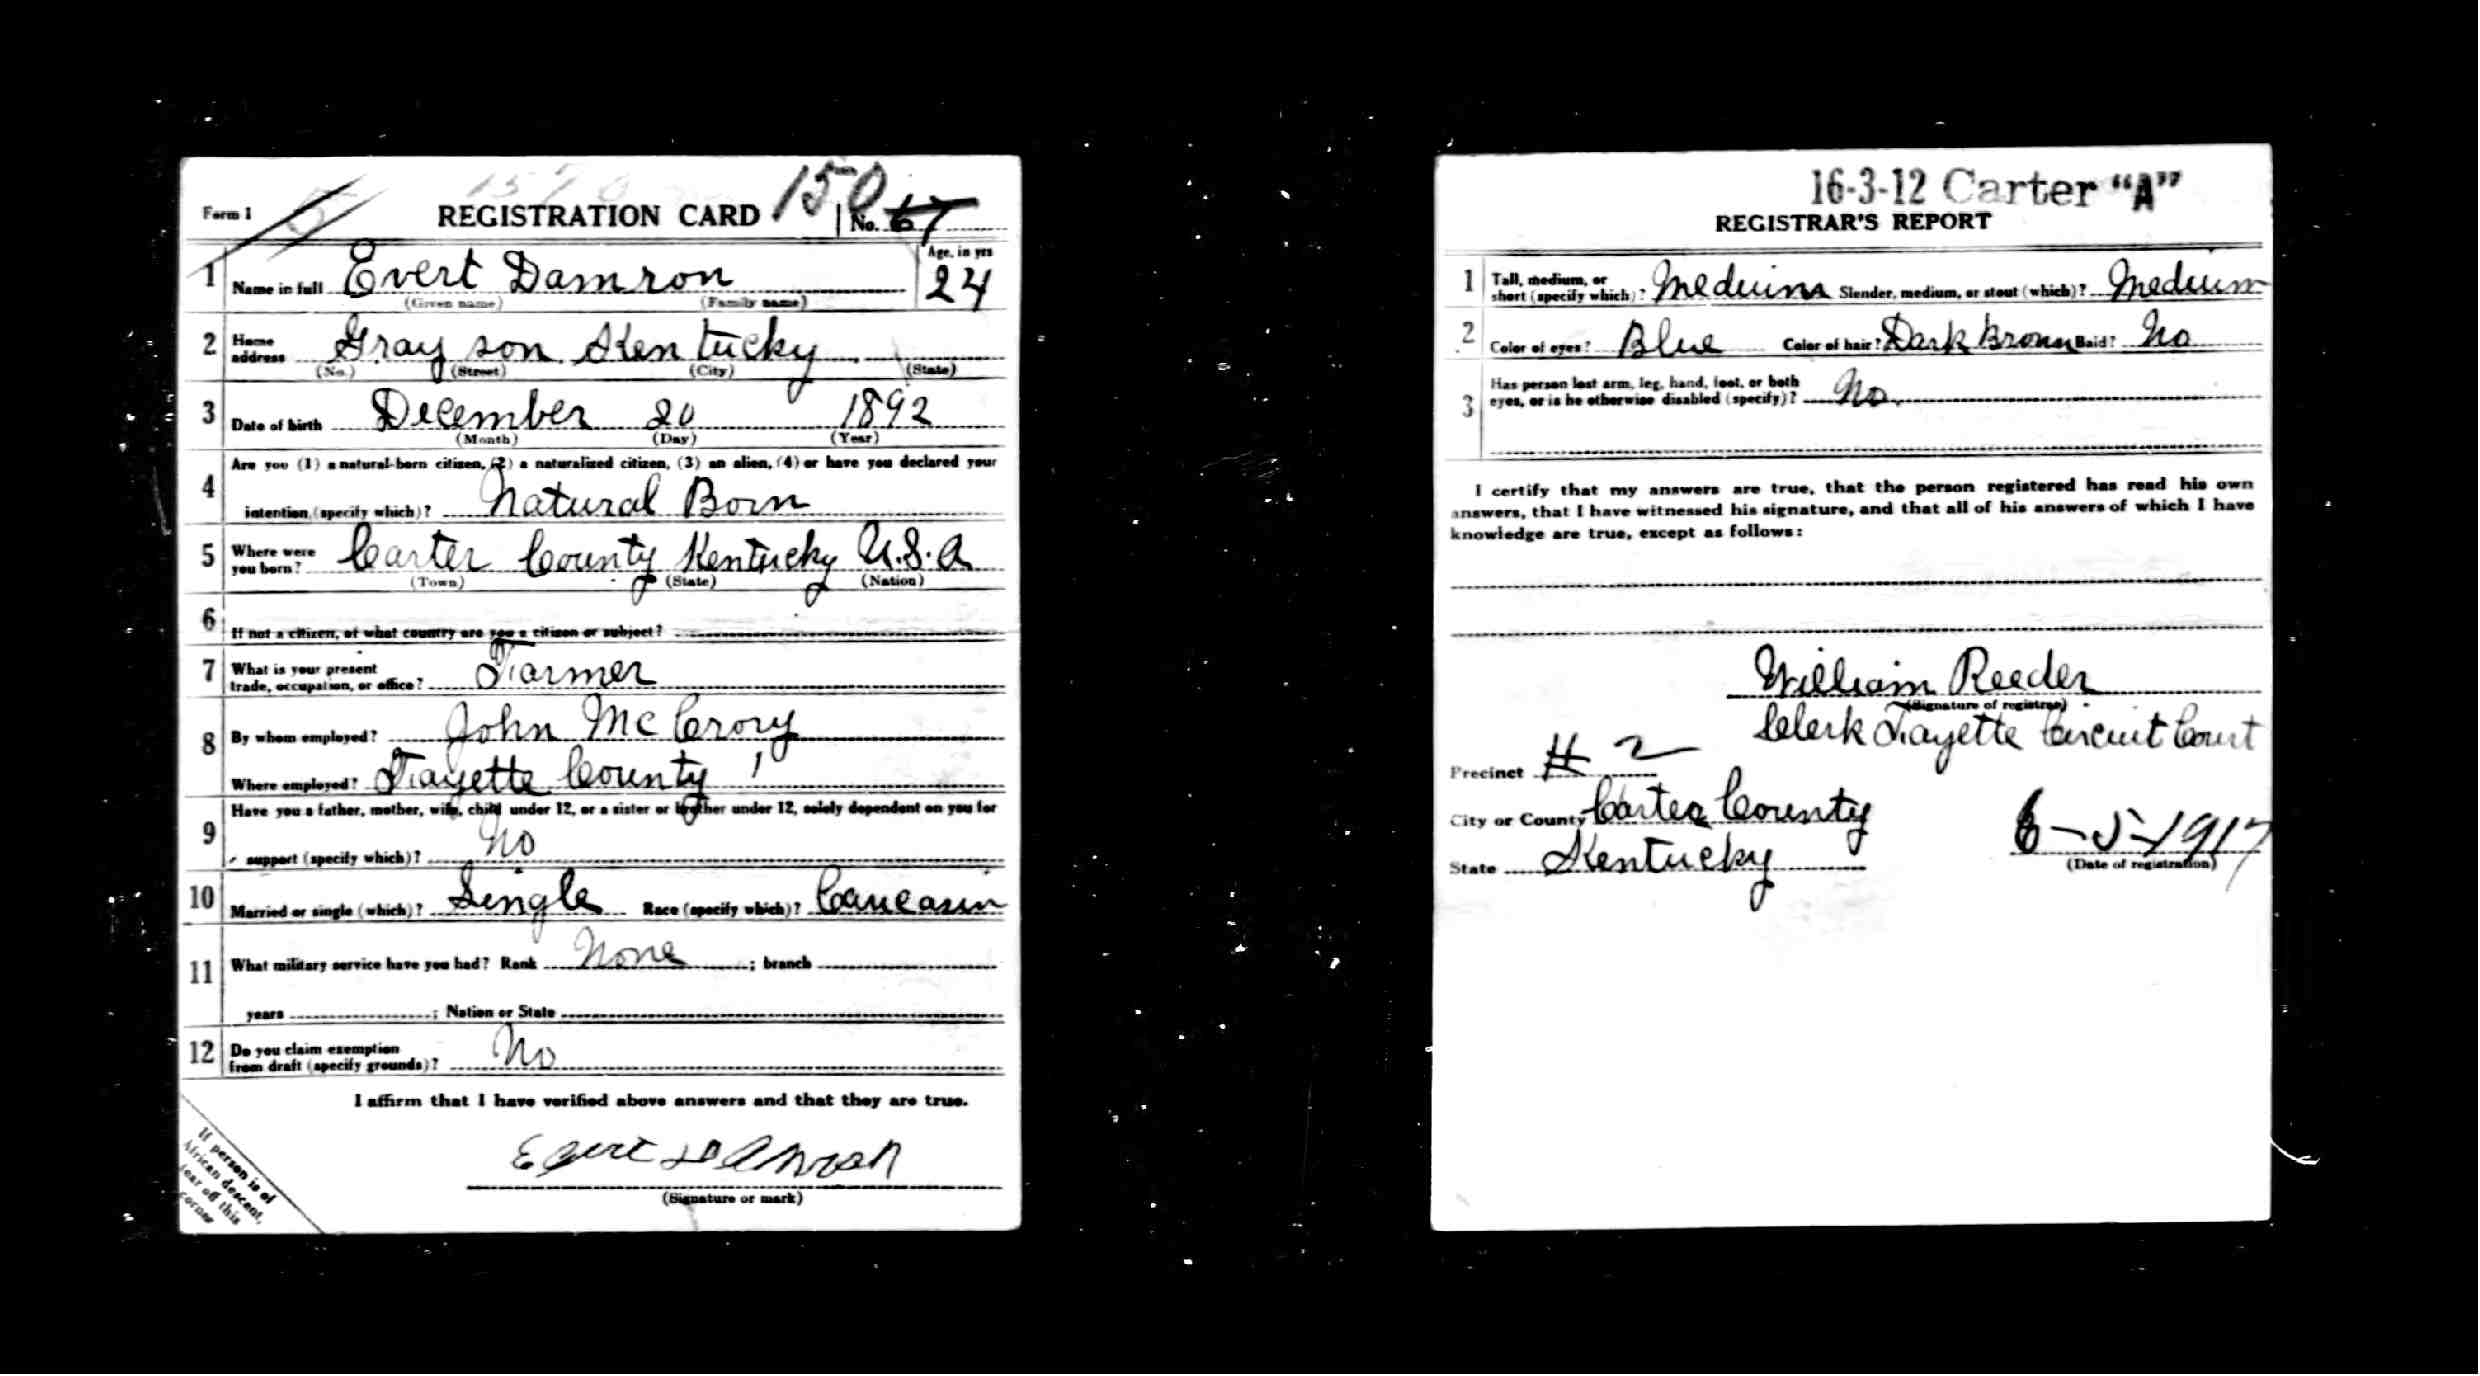 1570
150
Form 1 REGISTRATION CARD No. 67
1 Name in full Evert Damron Age, in yrs 24
(Given name) (Family name)
2 Home address Gray son Kentucky
(No.) (Street) (City) (State)
3 Date of birth December 20 1892
(Month) (Day) (Year)
4 Are you (1) a natural-born citizen, (2) a naturalized citizen, (3) an alien, (4) or have you declared your
intention (specify which)? Natural Born
5 Where were you born? Carter County Kentucky U.S.A
(Town) (State) (Nation)
6 If not a citizen, of what country are you a citizen or subject?
7 What is your present
trade, occupation, or office? Farmer
8 By whom employed? John McCrory
Where employed? Fayette County
9 Have you a father, mother, wife, child under 12, or a sister or brother under 12, solely dependent on you for
support (specify which)? No
10 Married or single (which)? Single Race (specify which)? Caucasin
11 What military service have you had? Rank None ; branch
years ; Nation or State
12 Do you claim exemption
from draft (specify grounds)? No
I affirm that I have verified above answers and that they are true.
Evert Damron
(Signature or mark)
If person is of
African descent,
tear off this
corner
16-3-12 Carter “A”
REGISTRAR'S REPORT
1 Tall, medium, or
short (specify which)? Medium Slender, medium, or stout (which)? Medium
2 Color of eyes? Blue Color of hair? Dark Brown Bald? No
3 Has person lost arm, leg, hand, foot, or both
eyes, or is he otherwise disabled (specify)? No.
I certify that my answers are true, that the person registered has read his own
answers, that I have witnessed his signature, and that all of his answers of which I have
knowledge are true, except as follows:
William Reeder
(Signature of registrar)
Clerk Fayette Circuit Court
Precinct # 2
City or County Carter County
State Kentucky
6-5-1917
(Date of registration)